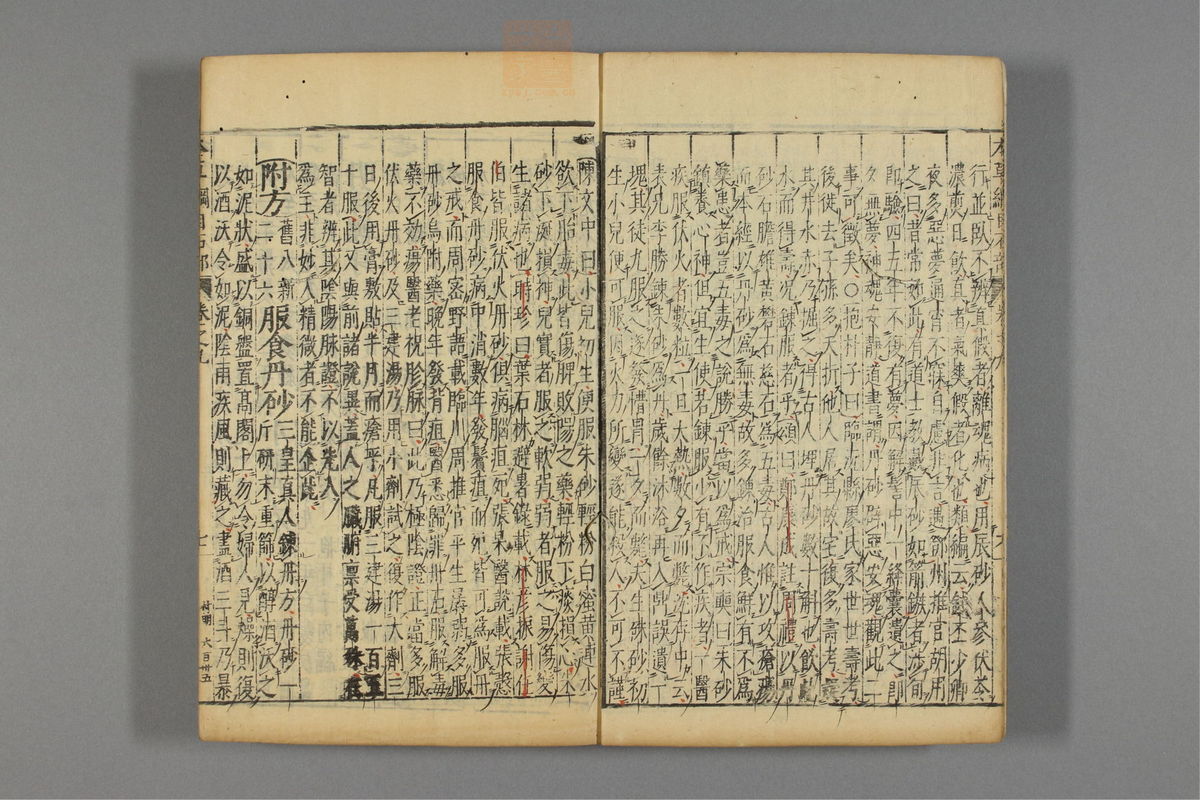 行並臥不辨真假者離魂病也用辰砂人參伏苓
濃煎日飲真者氣爽假者化也類編云錢丕少卿
夜多惡夢通宵不寐自慮非吉遇鄧州推官胡用
之曰昔常如此有道士教戴辰砂如箭鏃者涉旬
即驗四五年不復有夢因解髻中一絳囊遺之即
夕無夢神魂安靜道書謂丹砂辟惡安魂觀此二
事可徵矣○抱朴子曰臨沅縣廖氏家世世壽考
後徙去子孫多夭折他人居其故宅復多壽考
其井水赤乃掘之得古人埋丹砂數十斛也飲此
水而得壽况鍊服者乎頌曰鄭康成註周禮以丹
砂石膽雄黃礬石慈石為五毒古人惟以攻瘡瘍
而本經以丹砂為無毒故多鍊治服食鮮有不為
藥患者豈五毒之說勝乎當以為戒宗奭曰朱砂
鎮養心神但宜生使若鍊服少有不作疾者一醫
疾服伏火者數粒一旦大熱數夕而斃沈存中云
表兄李勝鍊朱砂為丹歲餘沐浴再入鼎誤遺一
塊其徒丸服之遂發懵冒一夕而斃夫生朱砂初
生小兒便可服因火力所變遂能殺人不可不謹
陳文中曰小兒初生便服朱砂輕粉白蜜黃連水
欲下胎毒此皆傷脾敗陽之藥輕粉下痰損心朱
砂下涎損神兒實者服之軟弱弱者服之易傷變
生諸病也時珍曰葉石林避暑錄載林彥振謝任
伯皆服伏火丹砂俱病腦疽死張杲醫說載張慤
服食丹砂病中消數年發鬢疽而死皆可為服丹
之戒而周密野語載臨川周推官平生孱弱多服
丹砂烏附藥晚年發背疽醫悉歸罪丹石服解毒
藥不効瘍醫老祝胗脉曰此乃極陰證正當多服
伏火丹砂及三建湯乃用小劑試之復作大劑三
日後用膏敷貼半月而瘡平凡服三建湯一百五
十服此又與前諸說異蓋人之臟腑稟受萬殊在
智者辨其陰陽脉證不以先入
為主非妙入精微者不能企此
附方舊八新二十六服食丹砂三皇真人鍊丹方丹砂一斤研末重篩以醇酒沃之
如泥狀盛以銅盤置高閣上勿令婦人見燥則復
以酒沃令如泥陰雨疾風則藏之盡酒三斗乃暴